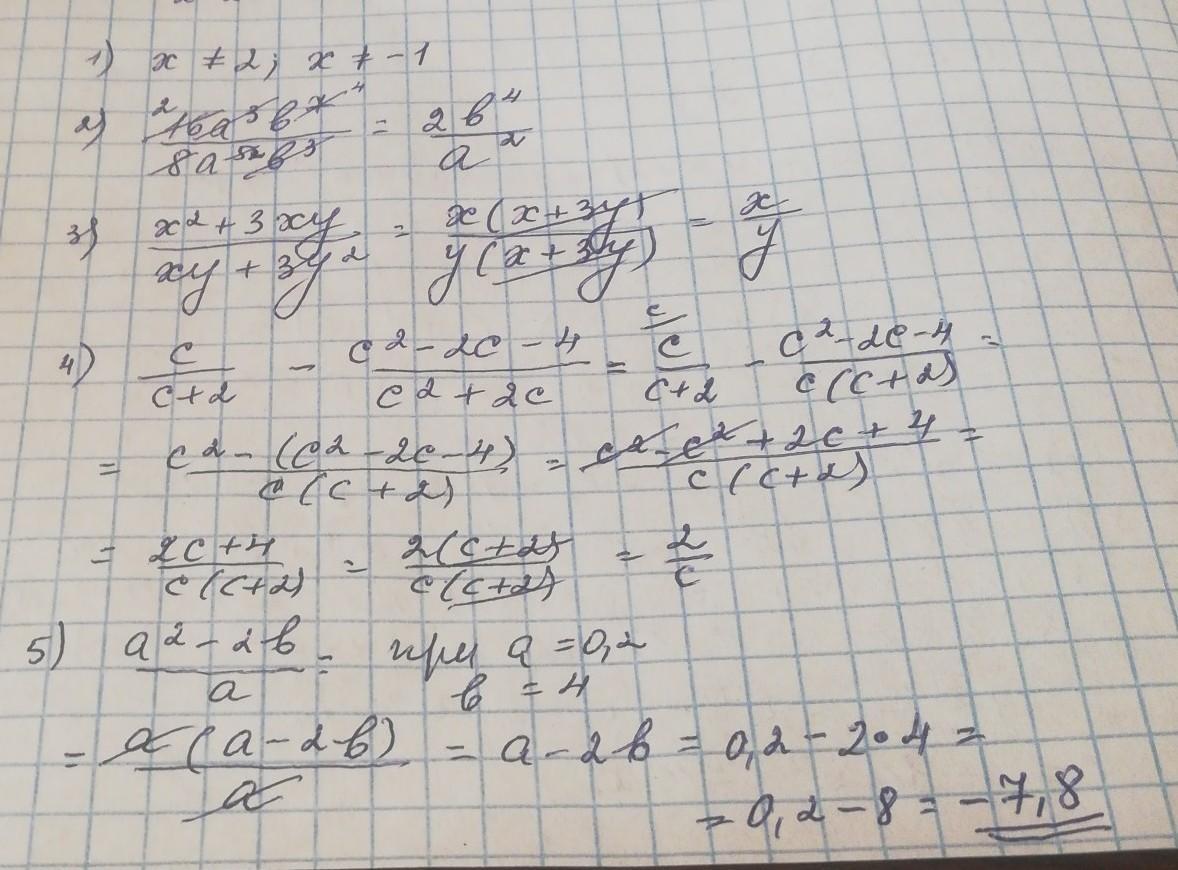 1) x ≠ 2; x ≠ -1
2) 16a³b⁷ / 8a⁵b³ = 2b⁴ / a²
3) x² + 3xy / xy + 3y² = x(x + 3y) / y(x + 3y) = x / y
4) c / c+2 - c² - 2c - 4 / c² + 2c = c/ c / c+2 - c² - 2c - 4 / c(c+2) =
= c² - (c² - 2c - 4) / c(c+2) = c² - c² + 2c + 4 / c(c+2) =
= 2c + 4 / c(c+2) = 2(c+2) / c(c+2) = 2 / c
5) a² - 2b / a = при a = 0,2
b = 4
= a(a - 2b) / a = a - 2b = 0,2 - 2·4 =
= 0,2 - 8 = -7,8